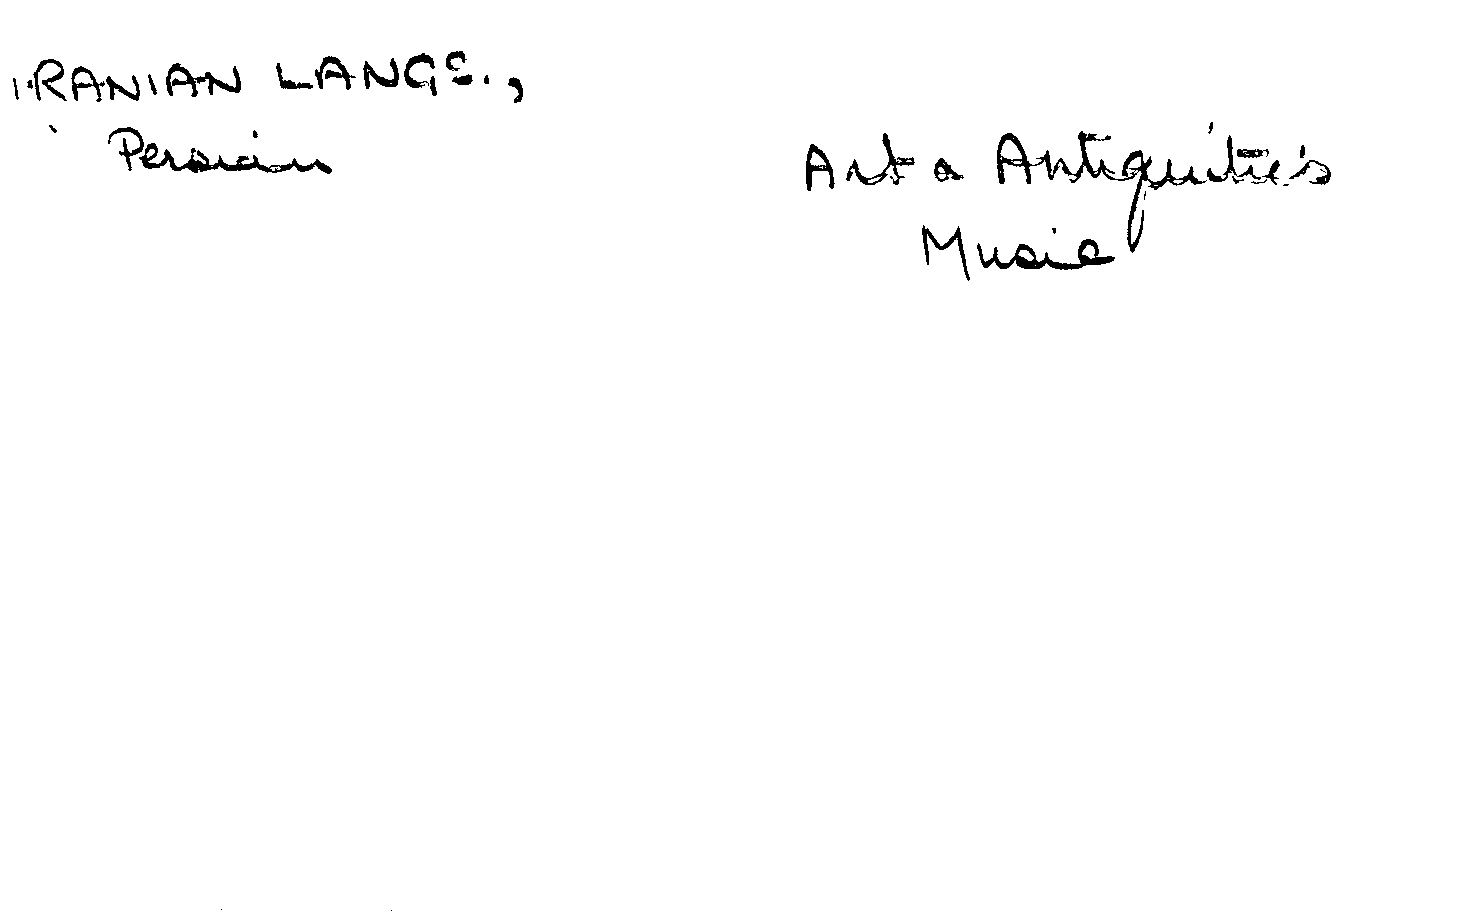 IRANIAN LANGS.,
Persian
Art & Antiquities
Music